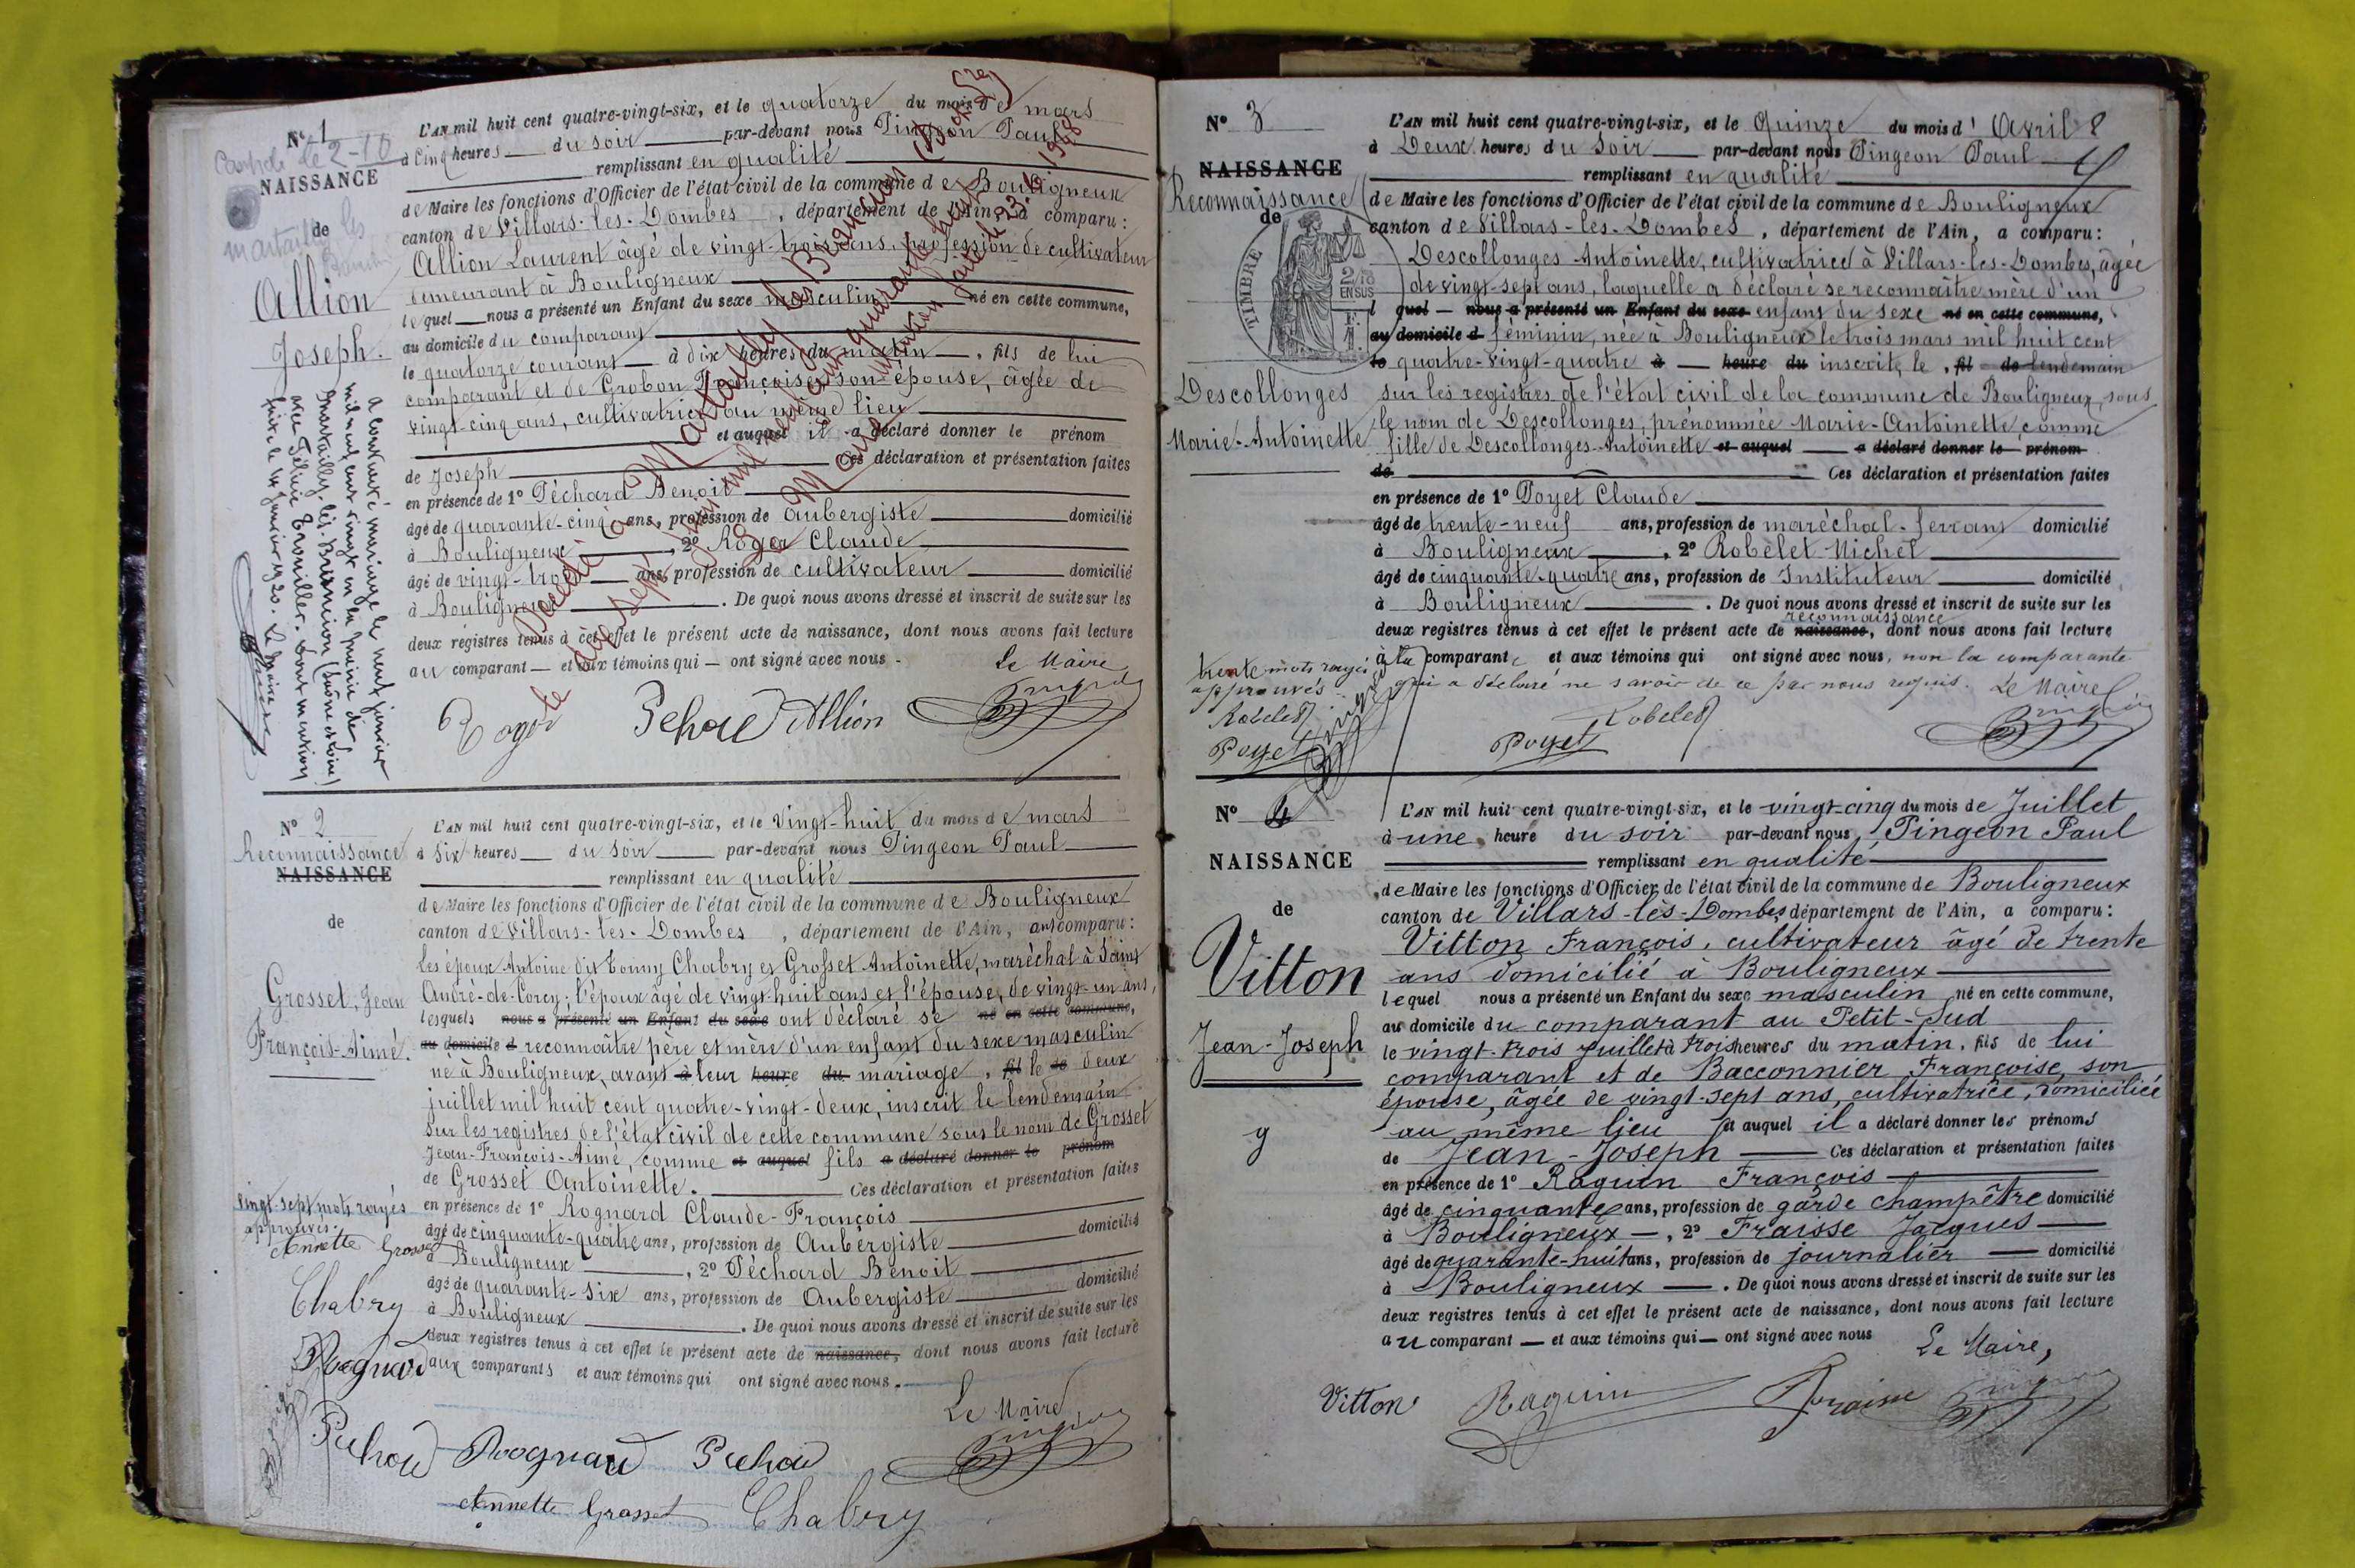 N° 1
NAISSANCE
de
Allion
Joseph.
L'AN mil huit cent quatre-vingt-six, et le quatorze du mois de mars
à cinq heures du soir par-devant nous Pingeon Paul
remplissant en qualité
de Maire les fonctions d'Officier de l'état civil de la commune de Bouligneux
canton de Villars-les-Dombes, département de l'Ain, a comparu:
Allion Laurent âgé de vingt-trois ans, profession de cultivateur
demeurant à Bouligneux
lequel nous a présenté un Enfant du sexe masculin né en cette commune,
au domicile du comparant
le quatorze courant à dix heures du matin, fils de lui
comparant et de Grobon Françoise, son épouse, âgée de
vingt-cinq ans, cultivatrice au même lieu
et auquel il a déclaré donner le prénom
de Joseph Ces déclaration et présentation faites
en présence de 1° Péchard Benoit
âgé de quarante-cinq ans, profession de Aubergiste domicilié
à Bouligneux, 2° Roger Claude
âgé de vingt-trois ans, profession de cultivateur domicilié
à Bouligneux. De quoi nous avons dressé et inscrit de suite sur les
deux registres tenus à cet effet le présent acte de naissance, dont nous avons fait lecture
au comparant et aux témoins qui ont signé avec nous.
Le Maire
Allion
A contracté mariage le neuf janvier
mil neuf cent vingt en la mairie de
Martailly-lès-Brancion (Saône et Loire)
Décédé à Martailly les Brancion
le dix sept juin mil neuf cent quarante huit
N° 2
Reconnaissance
NAISSANCE
de
Grosset, Jean
François-Aimé.
L'AN mil huit cent quatre-vingt-six, et le Vingt-huit du mois de mars
à Six heures du soir par-devant nous Pingeon Paul
remplissant en qualité
de Maire les fonctions d'Officier de l'état civil de la commune de Bouligneux
canton de Villars-les-Dombes, département de l'Ain, ont comparu:
les époux Antoine dit Tonny Chabry et Grosset Antoinette, maréchal à Saint
André-de-Corcy; l'époux âgé de vingt-huit ans et l'épouse, de vingt-un ans,
lesquels nous a présenté un Enfant du sexe ont déclaré se né en cette commune,
au domicile d reconnaître père et mère d'un enfant du sexe masculin
né à Bouligneux, avant à leur heure du mariage, fil le de deux
juillet mil huit cent quatre-vingt-deux, inscrit le lendemain
sur les registres de l'état civil de cette commune sous le nom de Grosset
Jean-François-Aimé, comme et auquel fils a déclaré donner le prénom
de Grosset Antoinette. Ces déclaration et présentation faites
en présence de 1° Rognard Claude-François
âgé de cinquante-quatre ans, profession de Aubergiste domicilié
à Bouligneux, 2° Péchard Benoit
âgé de quarante-six ans, profession de Aubergiste domicilié
à Bouligneux. De quoi nous avons dressé et inscrit de suite sur les
deux registres tenus à cet effet le présent acte de naissance, dont nous avons fait lecture
aux comparants et aux témoins qui ont signé avec nous.
Vingt-sept mots rayés
approuvés.
Annette Grosset
Chabry
Rognard
Le Maire
Rognard
Annette Grosset Chabry
N° 3
NAISSANCE
Reconnaissance
de
TIMBRE
EN SUS
Descollonges
Marie-Antoinette
L'AN mil huit cent quatre-vingt-six, et le Quinze du mois d'Avril
à Deux heures du soir par-devant nous Pingeon Paul
remplissant en qualité
de Maire les fonctions d'Officier de l'état civil de la commune de Bouligneux
canton de Villars-les-Dombes, département de l'Ain, a comparu:
Descollonges Antoinette, cultivatrice à Villars-les-Dombes, âgée
de vingt-sept ans, laquelle a déclaré se reconnaître mère d'un
l quel nous a présenté un Enfant du sexe enfant du sexe né en cette commune,
au domicile d féminin, née à Bouligneux le trois mars mil huit cent
le quatre-vingt-quatre à heure du inscrite le, fil de lendemain
sur les registres de l'état civil de la commune de Bouligneux, sous
le nom de Descollonges, prénommée Marie-Antoinette comme
fille de Descollonges Antoinette et auquel a déclaré donner le prénom
de Ces déclaration et présentation faites
en présence de 1° Poyet Claude
âgé de trente-neuf ans, profession de maréchal-ferrant domicilié
à Bouligneux, 2° Robelet Michel
âgé de cinquante-quatre ans, profession de Instituteur domicilié
à Bouligneux. De quoi nous avons dressé et inscrit de suite sur les
reconnaissance
deux registres tenus à cet effet le présent acte de naissance, dont nous avons fait lecture
à la comparante et aux témoins qui ont signé avec nous, non la comparante
qui a déclaré ne savoir de ce par nous requis. Le Maire
trente mots rayés
approuvés
Robelet
Poyet
Robelet
Poyet
N° 4
NAISSANCE
de
Vitton
Jean-Joseph
g
L'AN mil huit cent quatre-vingt-six, et le vingt-cinq du mois de Juillet
à une heure du soir par-devant nous, Pingeon Paul
remplissant en qualité
de Maire les fonctions d'Officier de l'état civil de la commune de Bouligneux
canton de Villars-les-Dombes département de l'Ain, a comparu:
Vitton François, cultivateur âgé de trente
ans domicilié à Bouligneux
lequel nous a présenté un Enfant du sexe masculin né en cette commune,
au domicile du comparant au Petit-Sud
le vingt-trois Juillet à trois heures du matin, fils de lui
comparant et de Bacconnier Françoise, son
épouse, âgée de vingt-sept ans, cultivatrice, domiciliée
au même lieu et auquel il a déclaré donner les prénoms
de Jean-Joseph Ces déclaration et présentation faites
en présence de 1° Raguin François
âgé de cinquante ans, profession de garde champêtre domicilié
à Bouligneux, 2° Fraisse Jacques
âgé de quarante-huit ans, profession de journalier domicilié
à Bouligneux. De quoi nous avons dressé et inscrit de suite sur les
deux registres tenus à cet effet le présent acte de naissance, dont nous avons fait lecture
au comparant et aux témoins qui ont signé avec nous
Le Maire,
Vitton Raguin Fraisse